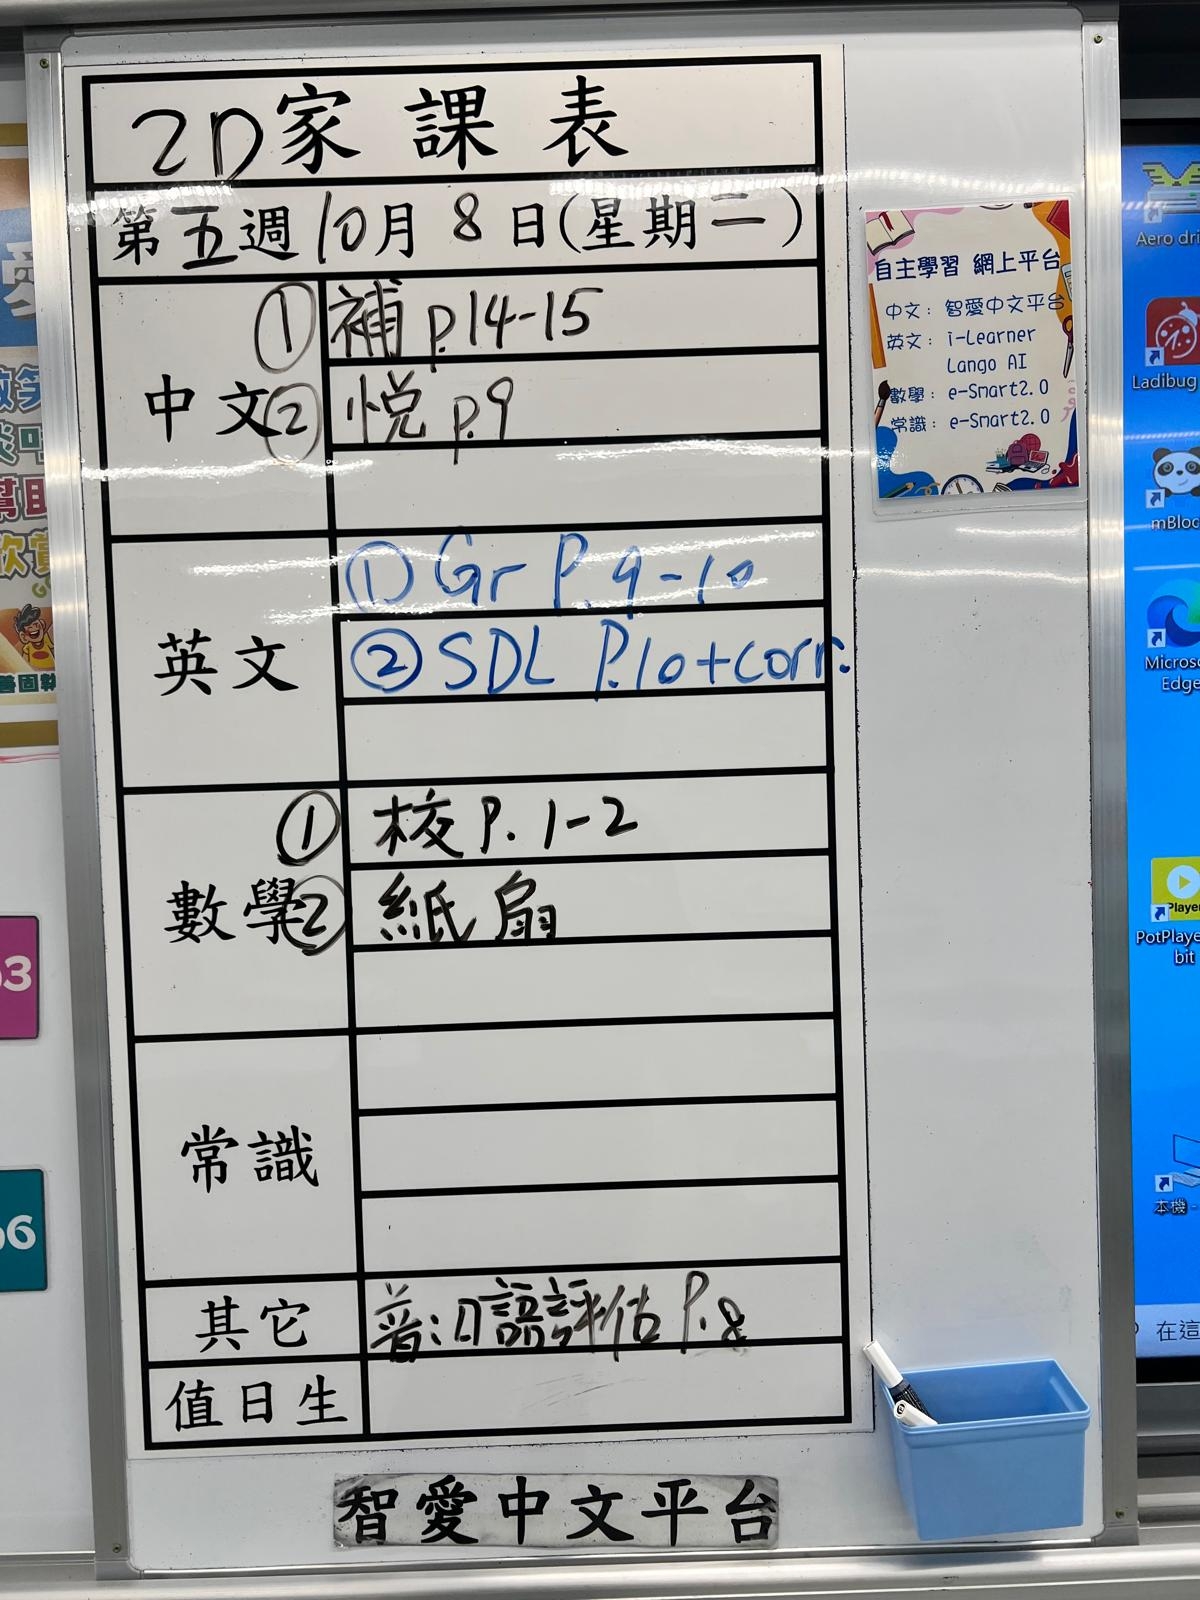 2D家課表
第五週10月8日(星期二)
中文
① 補 p.14-15
② 悦 p.9
英文
① Gr P.9-10
② SDL P.10+corr.
數學
① 校 P.1-2
② 紙扇
常識
其它
普:口語評估 P.8
值日生
智愛中文平台
自主學習 網上平台
中文：智愛中文平台
英文：i-Learner
Lango AI
數學：e-Smart2.0
常識：e-Smart2.0
Aero
Ladibug
Microso
Edge
Player
PotPlaye
bit
本機 -
在這